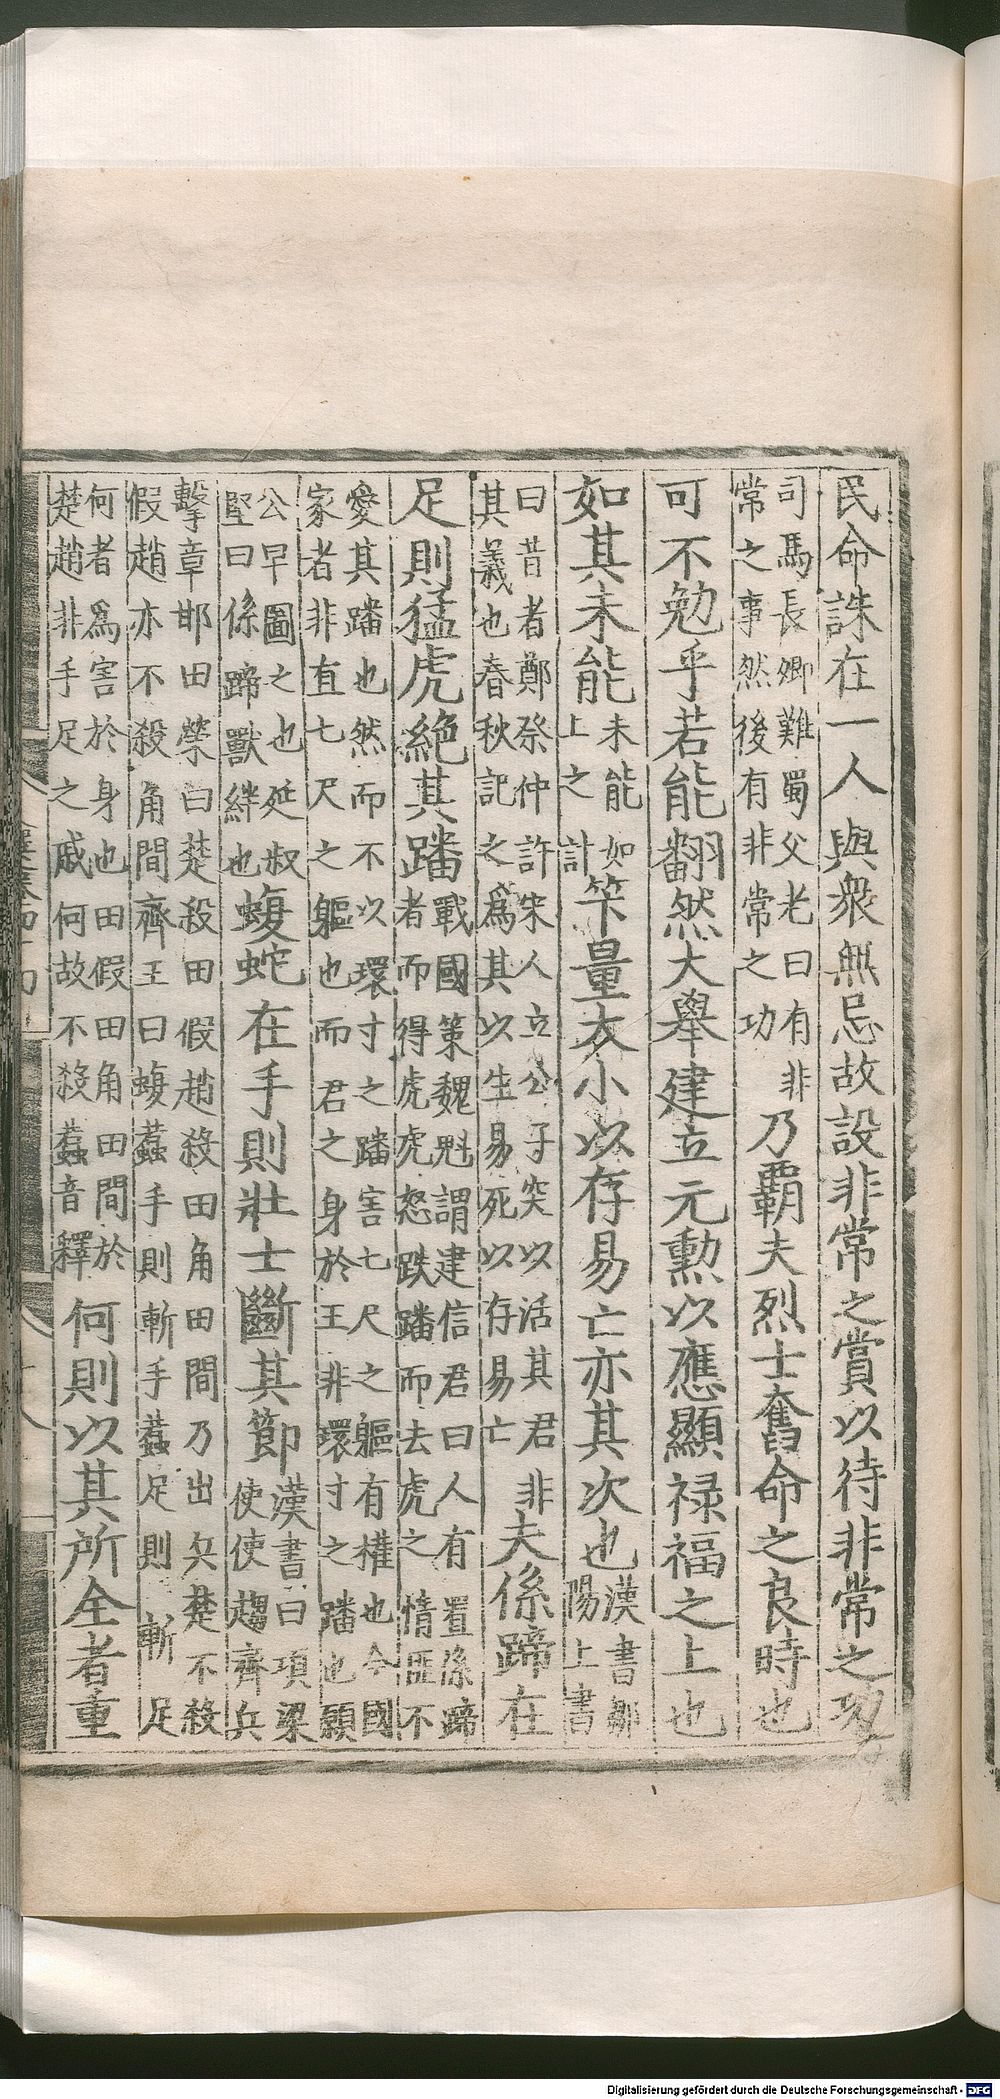 民命誅在一人與衆無忌故設非常之賞以待非常之功
司馬長卿難蜀父老曰有非
常之事然後有非常之功
乃霸夫烈士奮命之良時也
可不勉乎若能翻然大舉建立元勲以應顯祿福之上也
如其未能
未能如
上之計
筭量大小以存易亡亦其次也
漢書鄒
陽上書
曰昔者鄭祭仲許宋人立公子突以活其君非
其義也春秋記之爲其以生易死以存易亡
夫係蹄在
足則猛虎絕其蹯
戰國策魏魁謂建信君曰人有置係蹄
者而得虎虎怒跌蹯而去虎之情匪不
愛其蹯也然而不以環寸之蹯害七尺之軀有權也今國
家者非直七尺之軀也而君之身於王非環寸之蹯也願
公早圖之也延叔
堅曰係蹄獸絆也
蝮蛇在手則壯士斷其節
漢書曰項梁
使使趨齊兵
擊章邯田榮曰楚殺田假趙殺田角田間乃出兵楚不殺
假趙亦不殺角間齊王曰蝮蠚手則斬手蠚足則斬足
何者爲害於身也田假田角田間於
楚趙非手足之戚何故不殺蠚音釋
何則以其所全者重
Digitalisierung gefördert durch die Deutsche Forschungsgemeinschaft - DFG